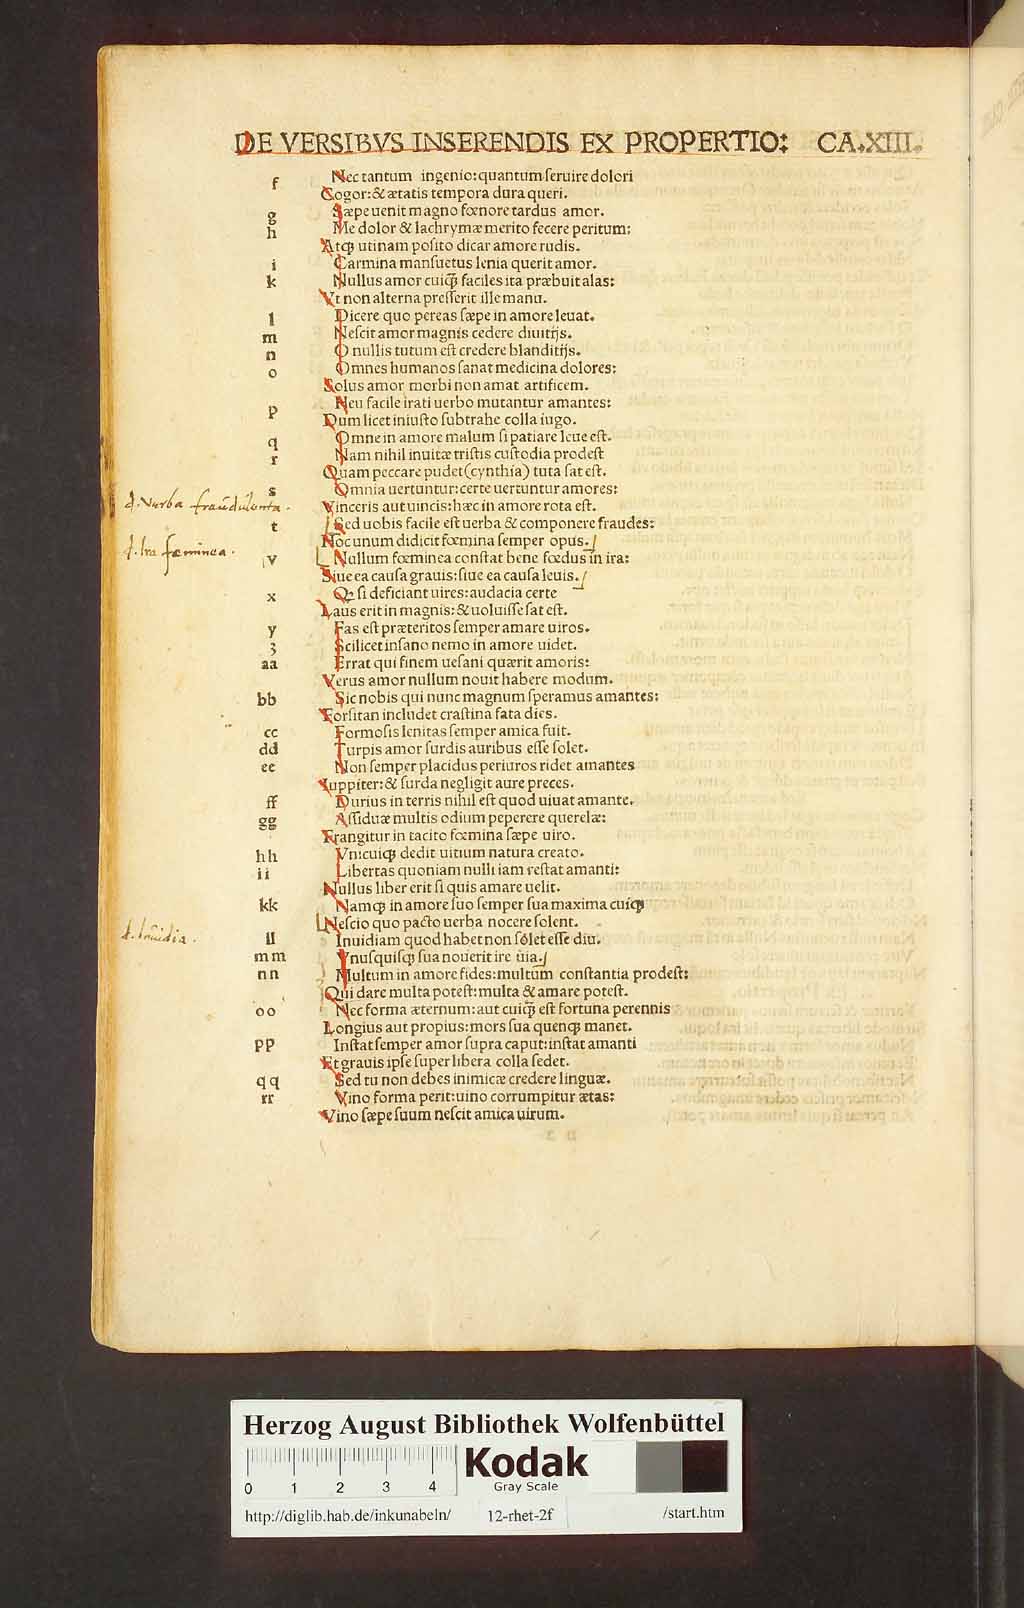 DE VERSIBVS INSERENDIS EX PROPERTIO: CA.XIII.
f Nec tantum ingenio: quantum ſeruire dolori
Cogor: & ætatis tempora dura queri.
g Sæpe uenit magno fœnore tardus amor.
h Me dolor & lachrymæ merito fecere peritum:
Atqꝫ utinam poſito dicar amore rudis.
i Carmina manſuetus lenia querit amor.
k Nullus amor cuiqꝫ faciles ita præbuit alas:
Vt non alterna preſſerit ille manu.
l Dicere quo pereas ſæpe in amore leuat.
m Neſcit amor magnis cedere diuitijs.
n O nullis tutum eſt credere blanditijs.
o Omnes humanos ſanat medicina dolores:
Solus amor morbi non amat artificem.
p Neu facile irati uerbo mutantur amantes:
Dum licet iniuſto ſubtrahe colla iugo.
q Omne in amore malum ſi patiare leue eſt.
r Nam nihil inuitæ triſtis cuſtodia prodeſt
Quam peccare pudet (cynthia) tuta ſat eſt.
s Omnia uertuntur: certe uertuntur amores:
.d. verba fraudulenta.
Vinceris aut uincis: hæc in amore rota eſt.
t Sed uobis facile eſt uerba & componere fraudes:
Hoc unum didicit fœmina ſemper opus.
.d. Ira fœminea.
v Nullum fœminea conſtat bene fœdus in ira:
Siue ea cauſa grauis: ſiue ea cauſa leuis.
x Qꝫ ſi deficiant uires: audacia certe
Laus erit in magnis: & uoluiſſe ſat eſt.
y Fas eſt præteritos ſemper amare uiros.
ʒ Scilicet inſano nemo in amore uidet.
aa Errat qui finem ueſani quærit amoris:
Verus amor nullum nouit habere modum.
bb Sic nobis qui nunc magnum ſperamus amantes:
Forſitan includet craſtina fata dies.
cc Formoſis lenitas ſemper amica fuit.
dd Turpis amor ſurdis auribus eſſe ſolet.
ee Non ſemper placidus periuros ridet amantes
Iuppiter: & ſurda negligit aure preces.
ff Durius in terris nihil eſt quod uiuat amante.
gg Aſſiduæ multis odium peperere querelæ:
Frangitur in tacito fœmina ſæpe uiro.
hh Vnicuiqꝫ dedit uitium natura creato.
ii Libertas quoniam nulli iam reſtat amanti:
Nullus liber erit ſi quis amare uelit.
kk Namqꝫ in amore ſuo ſemper ſua maxima cuiqꝫ
Neſcio quo pacto uerba nocere ſolent.
.d. Inuidia.
ll Inuidiam quod habet non ſolet eſſe diu.
mm Vnuſquiſqꝫ ſua nouerit ire uia.
nn Multum in amore fides: multum conſtantia prodeſt:
Qui dare multa poteſt: multa & amare poteſt.
oo Nec forma æternum: aut cuiqꝫ eſt fortuna perennis
Longius aut propius: mors ſua quenqꝫ manet.
pp Inſtat ſemper amor ſupra caput: inſtat amanti
Et grauis ipſe ſuper libera colla ſedet.
qq Sed tu non debes inimicæ credere linguæ.
rr Vino forma perit: uino corrumpitur ætas:
Vino ſæpe ſuum neſcit amica uirum.
Herzog August Bibliothek Wolfenbüttel
0 1 2 3 4
Kodak
Gray Scale
http://diglib.hab.de/inkunabeln/ 12-rhet-2f /start.htm